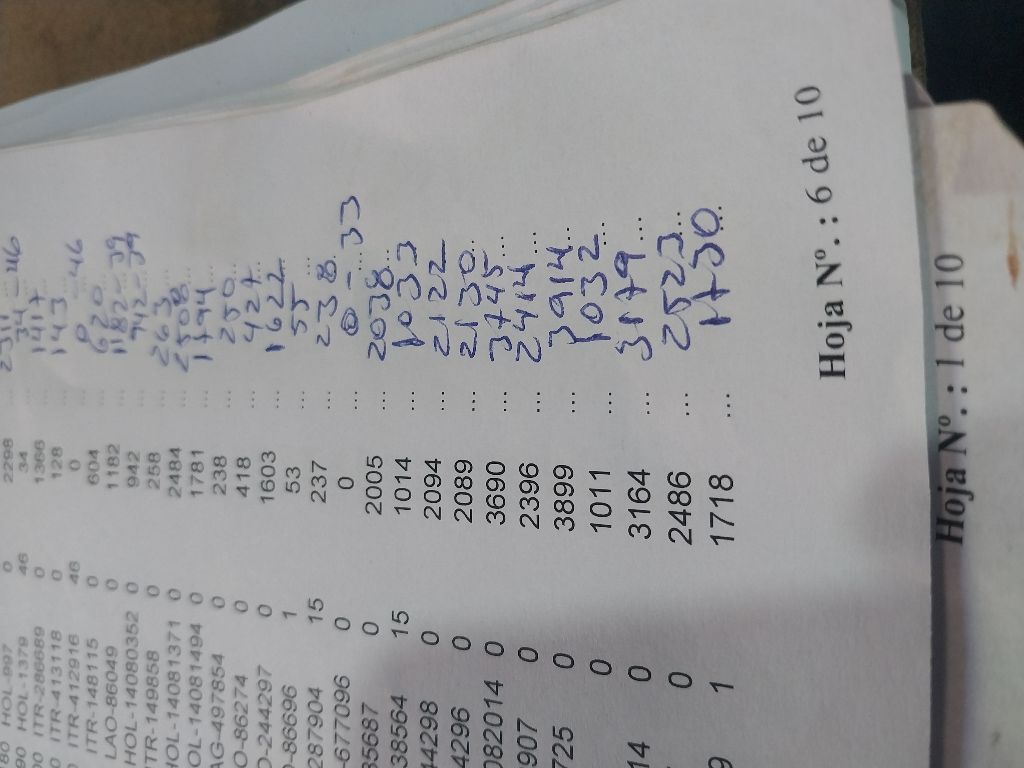 HOL-997 0 2298 ... 2311
HOL-1379 46 34 ... 34 -46
ITR-286689 0 1366 ... 1417
ITR-413118 0 128 ... 143
ITR-412916 46 0 ... 0 -46
ITR-148115 0 604 ... 620
LAO-86049 0 1182 ... 1182-39
HOL-14080352 0 942 ... 942-39
ITR-149858 0 258 ... 263
HOL-14081371 0 2484 ... 2508
OL-14081494 0 1781 ... 1794
AG-497854 0 238 ... 250
O-86274 0 418 ... 427
O-244297 0 1603 ... 1622
-86696 1 53 ... 55
287904 15 237 ... 238
-677096 0 0 ... 0-33
35687 0 2005 ... 2038
38564 15 1014 ... 1033
44298 0 2094 ... 2122
4296 0 2089 ... 2130
082014 0 3690 ... 3745
907 0 2396 ... 2414
725 0 3899 ... 3914
0 1011 ... 1032
14 0 3164 ... 3179
0 2486 ... 2523
9 1 1718 ... 1730
Hoja Nº. : 6 de 10
Hoja Nº. : 1 de 10